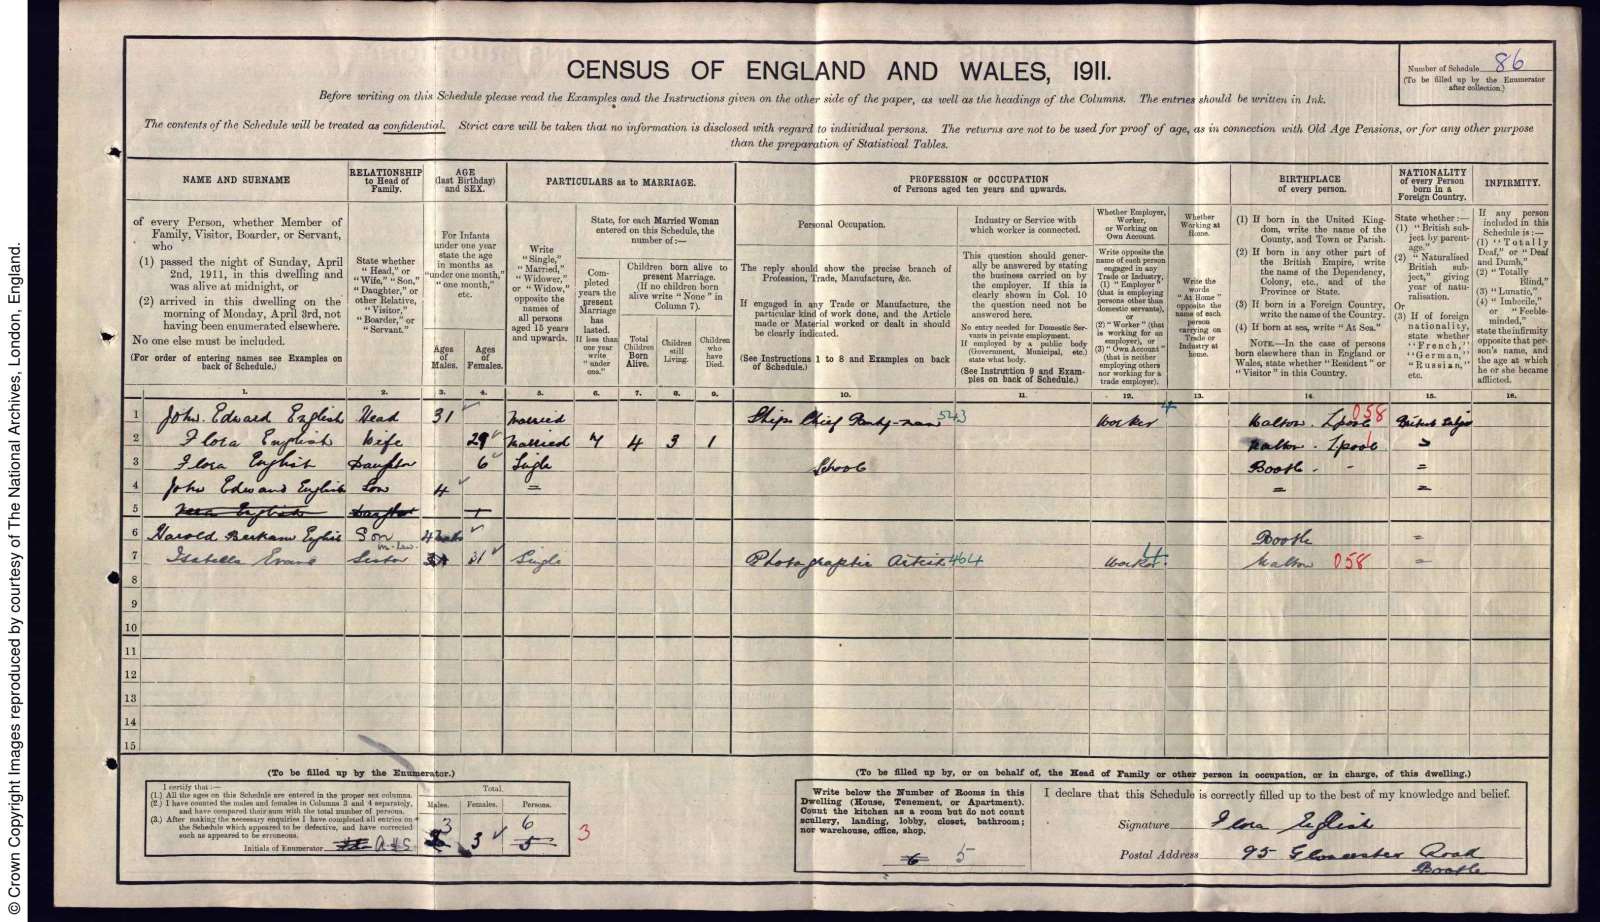 CENSUS OF ENGLAND AND WALES, 1911.
Number of Schedule 86
(To be filled up by the Enumerator
after collection.)
Before writing on this Schedule please read the Examples and the Instructions given on the other side of the paper, as well as the headings of the Columns. The entries should be written in Ink.
The contents of the Schedule will be treated as confidential. Strict care will be taken that no information is disclosed with regard to individual persons. The returns are not to be used for proof of age, as in connection with Old Age Pensions, or for any other purpose
than the preparation of Statistical Tables.
NAME AND SURNAME
of every Person, whether Member of
Family, Visitor, Boarder, or Servant,
who
(1) passed the night of Sunday, April
2nd, 1911, in this dwelling and
was alive at midnight, or
(2) arrived in this dwelling on the
morning of Monday, April 3rd, not
having been enumerated elsewhere.
No one else must be included.
(For order of entering names see Examples on
back of Schedule.)
RELATIONSHIP
to Head of
Family.
State whether
"Head," or
"Wife," "Son,"
"Daughter," or
other Relative,
"Visitor,"
"Boarder," or
"Servant."
AGE
(last Birthday)
and SEX.
For Infants
under one year
state the age
in months as
"under one month,"
"one month,"
etc.
Ages
of
Males.
Ages
of
Females.
PARTICULARS as to MARRIAGE.
Write
"Single,"
"Married,"
"Widower,"
or "Widow,"
opposite the
names of
all persons
aged 15 years
and upwards.
State, for each Married Woman
entered on this Schedule, the
number of:—
Com-
pleted
years the
present
Marriage
has
lasted.
If less than
one year
write
"under
one."
Children born alive to
present Marriage.
(If no children born
alive write "None" in
Column 7).
Total
Children
Born
Alive.
Children
still
Living.
Children
who
have
Died.
PROFESSION or OCCUPATION
of Persons aged ten years and upwards.
Personal Occupation.
The reply should show the precise branch of
Profession, Trade, Manufacture, &c.
If engaged in any Trade or Manufacture, the
particular kind of work done, and the Article
made or Material worked or dealt in should
be clearly indicated.
(See Instructions 1 to 8 and Examples on back
of Schedule.)
Industry or Service with
which worker is connected.
This question should gener-
ally be answered by stating
the business carried on by
the employer. If this is
clearly shown in Col. 10
the question need not be
answered here.
No entry needed for Domestic Ser-
vants in private employment.
If employed by a public body
(Government, Municipal, etc.)
state what body.
(See Instruction 9 and Exam-
ples on back of Schedule.)
Whether Employer,
Worker,
or Working on
Own Account.
Write opposite the
name of each person
engaged in any
Trade or Industry,
(1) "Employer"
(that is employing
persons other than
domestic servants),
or
(2) "Worker" (that
is working for an
employer), or
(3) "Own Account"
(that is neither
employing others
nor working for a
trade employer).
Whether
Working at
Home.
Write the
words
"At Home"
opposite the
name of each
person
carrying on
Trade or
Industry at
home.
BIRTHPLACE
of every person.
(1) If born in the United King-
dom, write the name of the
County, and Town or Parish.
(2) If born in any other part of
the British Empire, write
the name of the Dependency,
Colony, etc., and of the
Province or State.
(3) If born in a Foreign Country,
write the name of the Country.
(4) If born at sea, write "At Sea."
NOTE.—In the case of persons
born elsewhere than in England or
Wales, state whether "Resident" or
"Visitor" in this Country.
NATIONALITY
of every Person
born in a
Foreign Country.
State whether:—
(1) "British sub-
ject by parent-
age."
(2) "Naturalised
British sub-
ject," giving
year of natu-
ralisation.
Or
(3) If of foreign
nationality,
state whether
"French,"
"German,"
"Russian,"
etc.
INFIRMITY.
If any person
included in this
Schedule is:—
(1) "Totally
Deaf," or "Deaf
and Dumb,"
(2) "Totally
Blind,"
(3) "Lunatic,"
(4) "Imbecile,"
or "Feeble-
minded,"
state the infirmity
opposite that per-
son's name, and
the age at which
he or she became
afflicted.
1. 2. 3. 4. 5. 6. 7. 8. 9. 10. 11. 12. 13. 14. 15. 16.
1 John Edward English Head 31 Married Ships Chief Pantry-man 543 Worker 4 Walton. Lpool 058 British
2 Flora English Wife 29 Married 7 4 3 1 Walton. Lpool
3 Flora English Daughter 6 Single School Bootle - =
4 John Edward English Son 4 = = =
5 Vera English Daughter 1
6 Harold Bertram English Son 4 Bootle =
7 Isabella Evans Sister in-law 31 Single Photographic Artist 464 Worker 4 Walton 058 =
8
9
10
11
12
13
14
15
(To be filled up by the Enumerator.)
I certify that:—
(1.) All the ages on this Schedule are entered in the proper sex columns.
(2.) I have counted the males and females in Columns 3 and 4 separately,
and have compared their sum with the total number of persons.
(3.) After making the necessary enquiries I have completed all entries on
the Schedule which appeared to be defective, and have corrected
such as appeared to be erroneous.
Initials of Enumerator
Total.
Males. Females. Persons.
3 3 6
5
3
(To be filled up by, or on behalf of, the Head of Family or other person in occupation, or in charge, of this dwelling.)
Write below the Number of Rooms in this
Dwelling (House, Tenement, or Apartment).
Count the kitchen as a room but do not count
scullery, landing, lobby, closet, bathroom;
nor warehouse, office, shop.
6 5
I declare that this Schedule is correctly filled up to the best of my knowledge and belief.
Signature Flora English
Postal Address 95 Gloucester Road
Bootle
© Crown Copyright Images reproduced by courtesy of The National Archives, London, England.